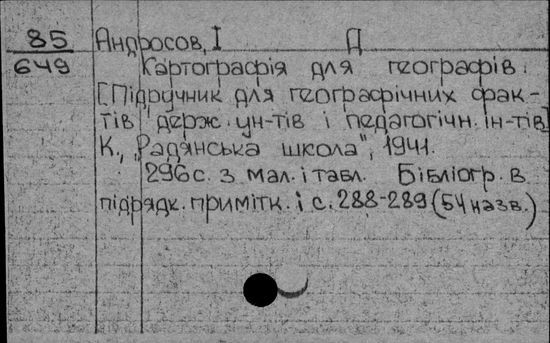 85 Андросов, І Д
649 Картографія для географів.
[Підручник для географічних фак-
тів держ. ун-тів і педагогічн. ін-тів]
К., „Радянська школа", 1941.
296 с. з мал. і табл. Бібліогр. в
підрядк. примітк. і с. 288-289 (54 назв.)